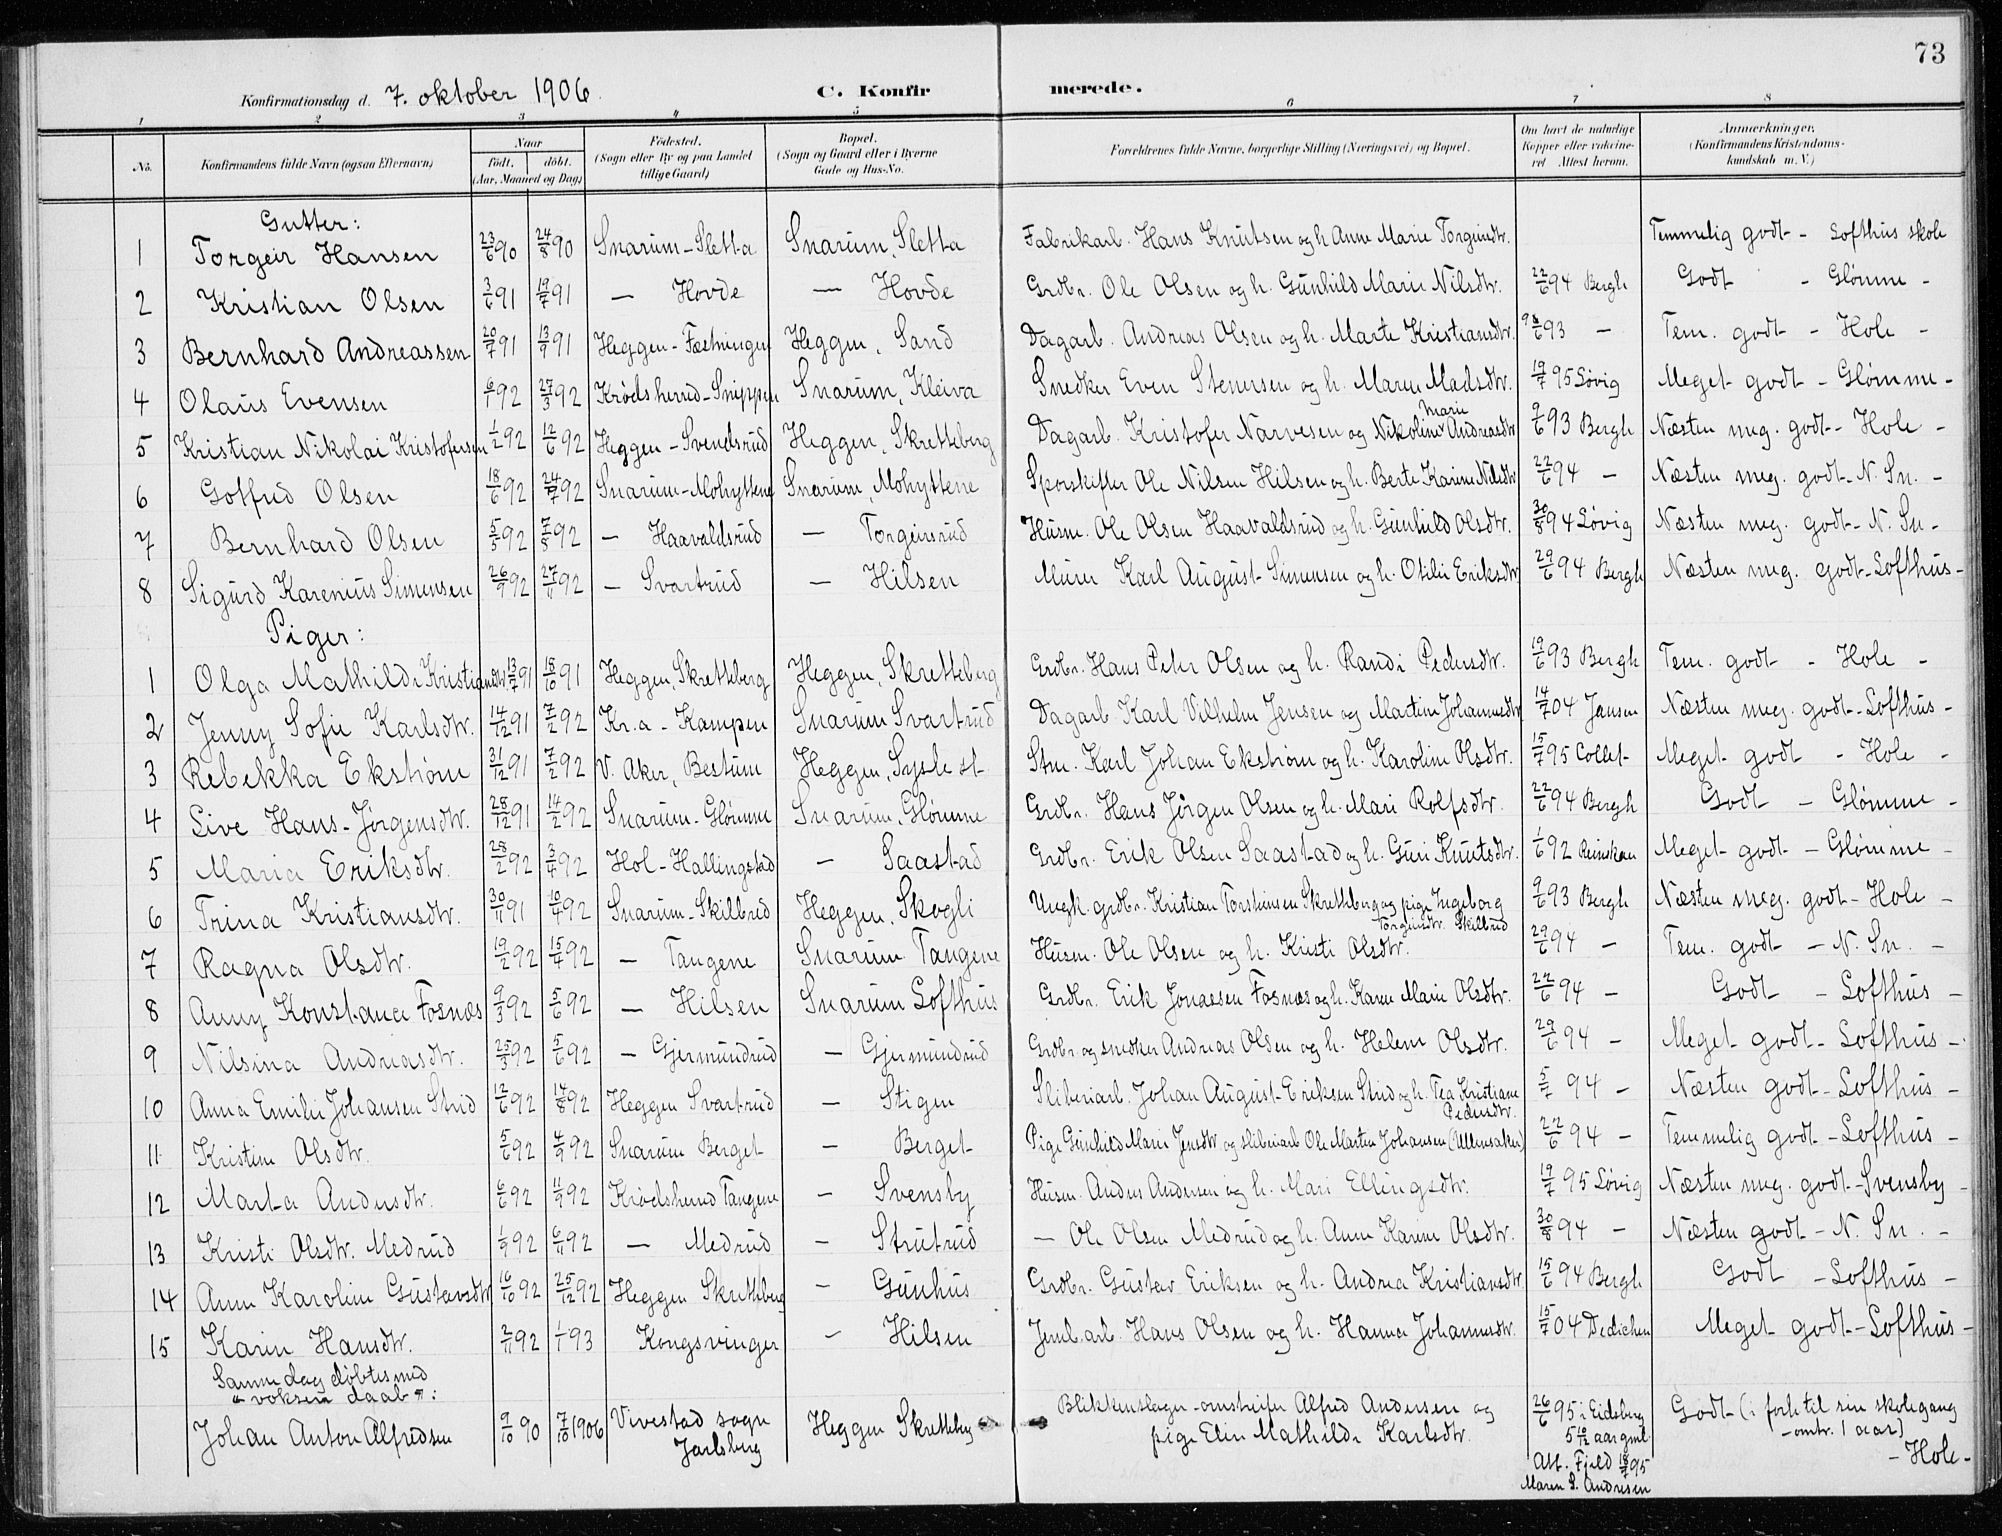 73
Konfirmationsdag d. 7. oktober 1906. C. Konfirmerede.
1 2 3 4 5 6 7 8
No. Konfirmandens fulde Navn (ogsaa Efternavn) Naar født. døbt. (Aar, Maaned og Dag) Fødested. (Sogn eller By og paa Landet tillige Gaard) Bopæl. (Sogn og Gaard eller i Byerne Gade og Hus-No. Forældrenes fulde Navne, borgerlige Stilling (Næringsvei) og Bopæl. Om havt de naturlige Kopper eller vaksineret Attest herom. Anmærkninger. (Konfirmandens Kristendomskundskab m. V.)
Gutter:
1 Torgeir Hansen 23/6 90 24/8 90 Snarum-Sletta Snarum, Sletta Fabrikarb. Hans Knutsen og h. Anne Marie Torgeirsdtr. Temmelig godt - Lofthus skole
2 Kristian Olsen 3/6 91 19/7 91 — Hovde — Hovde Grdbr. Ole Olsen og h. Gunhild Marie Nilsdtr. 22/6 94 Bergh Godt - Glømme -
3 Bernhard Andreassen 20/7 91 13/9 91 Heggen-Fætningen Heggen, Sand Dagarb. Andreas Olsen og h. Marte Kristiansdtr. 93 — Tem. godt - Hole -
4 Olaus Evensen 6/1 92 27/3 92 Krødsherred-Snippen Snarum, Kleiva Snedker Even Stenersen og h. Maren Madsdtr. 19/7 95 Løvig Meget godt - Glømme -
5 Kristian Nikolai Kristofersen 1/2 92 12/6 92 Heggen-Svendsrud Heggen, Skretteberg Dagarb. Kristofer Narvesen og Nikoline Marie Andreasdtr 9/6 93 Bergh Næsten meg. godt - Hole -
6 Gotfred Olsen 18/6 92 24/7 92 Snarum-Mohyttene Snarum, Mohyttene Sporskifter Ole Nilsen Hilsen og h. Berte Karine Nilsdtr 22/6 94 — Næsten meg. godt - N. Sn. -
7 Bernhard Olsen 5/5 92 7/8 92 — Haavaldsrud — Torgeirsrud Husm. Ole Olsen Haavaldsrud og h. Gunhild Olsdtr. 30/8 94 Løvig Næsten meg. godt - N. Sn -
8 Sigurd Karenius Simensen 26/9 92 27/11 92 — Svartrud — Hilsen Murer Karl August Simensen og h. Otilie Eriksdtr 29/6 94 Bergh Næsten meg. godt - Lofthus -
Piger:
1 Olga Mathilde Kristiansdtr. 13/7 91 18/10 91 Heggen, Skretteberg Heggen, Skretteberg Grdbr. Hans Peter Olsen og h. Randi Pedersdtr. 19/6 93 Bergh Tem. godt - Hole -
2 Jenny Sofie Karlsdtr. 14/12 91 7/2 92 Kr.a - Kampen Snarum Svartrud Dagarb. Karl Vilhelm Jensen og Martine Johannesdtr 14/7 04 Jansen Næsten meg. godt - Lofthus -
3 Rebekka Ekstrøm 31/12 91 7/2 92 V. Aker, Bestum Heggen, Sysle st Stm. Karl Johan Ekstrøm og h. Karoline Olsdtr. 15/7 95 Collet Meget godt - Hole -
4 Live Hans-Jørgensdtr. 28/12 91 14/2 92 Snarum-Glømme Snarum, Glømme Grdbr. Hans Jørgen Olsen og h. Mari Rolfsdtr. 22/6 94 Bergh Godt - Glømme -
5 Maria Eriksdtr. 28/2 92 3/4 92 Hol-Hallingstad — Saastad Grdbr. Erik Olsen Saastad og h. Guri Knutsdtr. 1/6 92 Meget godt - Glømme -
6 Trina Kristiansdtr. 30/11 91 10/4 92 Snarum-Skilbred Heggen, Skogli Ungk. grdbr. Kristian Torstensen Skretteberg og pige Ingeborg Torgeirsdtr. Skilbred 9/6 93 Bergh Næsten meg. godt - Hole -
7 Ragna Olsdtr. 19/2 92 15/4 92 — Tangene Snarum Tangene Husm. Ole Olsen og h. Kristi Olsdtr. 29/6 94 — Tem. godt - N. Sn. -
8 Anny Konstance Fosnæs 9/3 92 5/6 92 — Hilsen Snarum Lofthus Grdbr. Erik Jonassen Fosnæs og h. Karen Marie Olsdtr. 22/6 94 — Godt - Lofthus -
9 Nilsina Andreasdtr. 25/3 92 5/6 92 — Gjermundrud — Gjermundrud Grdbr. og snedker Andreas Olsen og h. Helene Olsdtr. 29/6 94 — Meget godt - Lofthus -
10 Anna Emilie Johansen Strid 12/6 92 14/8 92 Heggen Svartrud — Stigen Sliberiarb. Johan August Eriksen Strid og h. Tea Kristiane Pedersdtr. 94 — Næsten godt - Lofthus -
11 Kristine Olsdtr. 5/6 92 4/9 92 Snarum Berget — Berget Pige Gunhild Marie Jensdtr og sliberiarb Ole Martin Johansen (Ullensaker) 22/6 94 — Temmelig godt - Lofthus -
12 Marta Andersdtr. 6/6 92 11/9 92 Krødsherred Tangene — Svensby Husm. Anders Andersen og h. Mari Ellingsdtr. 19/7 95 Løvig Næsten meg. godt - Svensby -
13 Kristi Olsdtr. Medrud 1/9 92 6/11 92 — Medrud — Strutrud — Ole Olsen Medrud og h. Anne Karine Olsdtr. 30/8 94 — Næsten godt - N. Sn. -
14 Anne Karoline Gustavsdtr 16/10 92 25/12 92 Heggen Skretteberg — Gunhus Grdbr. Gustav Eriksen og h. Andrea Kristiansdtr 15/6 94 Bergh Godt - Lofthus -
15 Karin Hansdtr. 2/11 92 1/1 93 Kongsvinger — Hilsen Jernb.arb. Hans Olsen og h. Hanna Johannesdtr. 15/7 04 Dedichen Meget godt - Lofthus -
Samme dag døbtes med
"voksen daab":
Johan Anton Alfredsen 9/10 90 7/10 1906 Vivestad sogn Jarlsberg Heggen Skretteberg Blikkenslager-omstreifer Alfred Andersen og pige Elin Mathilde Karlsdtr. 26/6 95 i Eidsberg 5 6/12 aar gml. Att. Fjeld 18/7 95 Maren S. Andresen Godt (i forh. til sin skolegang -omtr. 1 aar) - Hole -